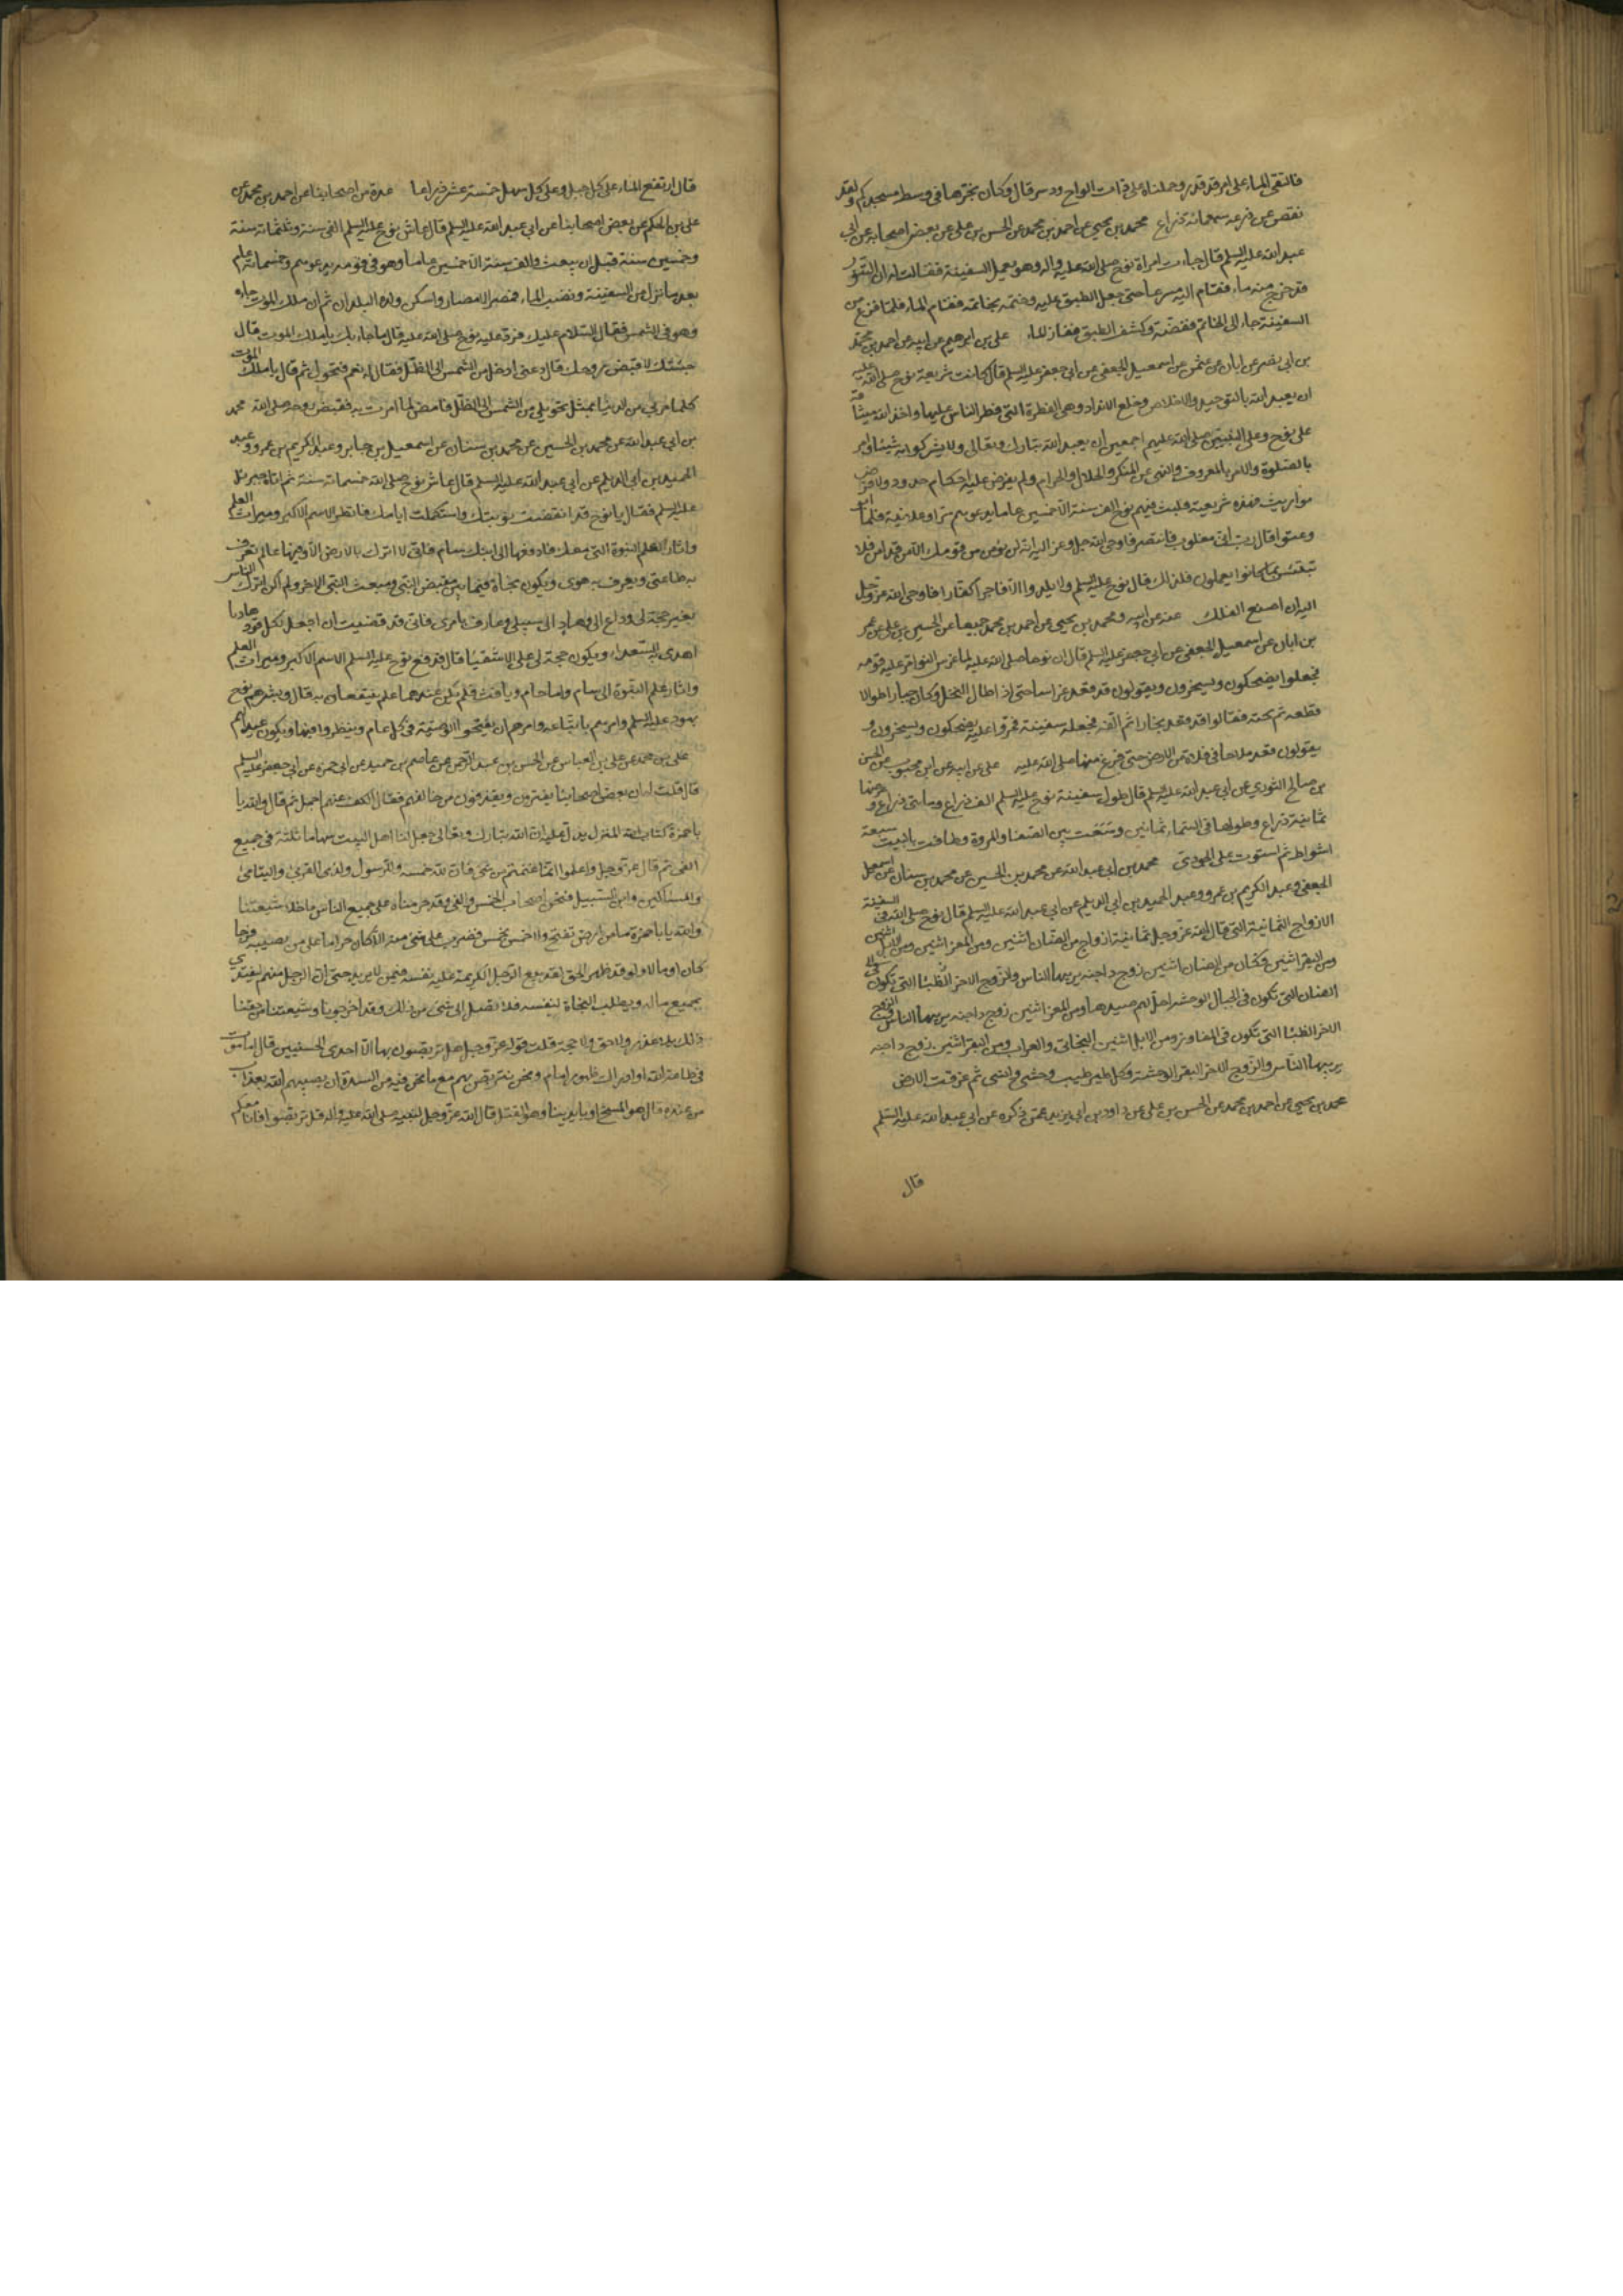 فالتقى الماء على امر قد قدر وحملناه على ذات الواح ودسر قال وكان نجرها في وسط مسجدكم ولقد
نقص عن ذرعه سبعمائة ذراع محمد بن يحيى عن احمد بن محمد عن الحسن بن علي عن بعض اصحابه عن ابي
عبد الله عليه السلم قال جاءت امراة نوح صلى الله عليه واله وهو يعمل السفينة فقالت له ان التنور
قد خرج منه ماء فقام اليه مسرعا حتى جعل الطبق عليه وختمه بخاتمه فقام الماء فلما فرغ من
السفينة جاء الى الخاتم ففضه وكشف الطبق ففار الماء علي بن ابرهيم عن ابيه عن احمد بن محمد
بن ابي نصر عن ابان بن عثمن عن اسمعيل الجعفي عن ابي جعفر عليه السلم قال كانت شريعة نوح صلى الله عليه
ان يعبد الله بالتوحيد والاخلاص وخلع الانداد وهي الفطرة التي فطر الناس عليها واخذ الله ميثاقه
على نوح وعلى النبيين صلى الله عليهم اجمعين ان يعبد الله تبارك وتعالى ولا يشركوا به شيئا وامر
بالصلوة والامر بالمعروف والنهي عن المنكر والحلال والحرام ولم يفرض عليه احكام حدود ولا فرض
مواريث فهذه شريعته فلبث فيهم نوح الف سنة الا خمسين عاما يدعوهم سرا وعلانية فلما ابوا
وعتوا قال رب اني مغلوب فانتصر فاوحى الله جل وعز اليه انه لن يؤمن من قومك الا من قد امن فلا
تبتئس بما كانوا يعملون فلذلك قال نوح عليه السلم ولا يلدوا الا فاجرا كفارا فاوحى الله عز وجل
اليه ان اصنع الفلك عنه عن ابيه ومحمد بن يحيى عن احمد بن محمد جميعا عن الحسين بن علي عن عمر
بن ابان عن اسمعيل الجعفي عن ابي جعفر عليه السلم قال ان نوحا صلى الله عليه لما غرس النوا مر عليه قومه
فجعلوا يضحكون ويسخرون ويقولون قد قعد غراسا حتى اذا طال النخل وكان جبارا طوالا
قطعه ثم نحته فقالوا قد قعد نجارا ثم الفه فجعله سفينة فمروا عليه يضحكون ويسخرون و
يقولون قعد ملاحا في فلاة من الارض حتى فرغ منها صلى الله عليه علي عن ابيه عن ابن محبوب عن الحسن
بن صالح الثوري عن ابي عبد الله عليه السلم قال طول سفينة نوح عليه السلم الف ذراع ومائتي ذراع وعرضها
ثمانمئة ذراع وطولها في السماء ثمانين وسعت بين الصفا والمروة وطافت بالبيت سبعة
اشواط ثم استوت على الجودي محمد بن ابي عبد الله عن محمد بن الحسين عن محمد بن سنان عن اسمعيل
الجعفي وعبد الكريم بن عمرو وعبد الحميد بن ابي الديلم عن ابي عبد الله عليه السلم قال نوح صلى الله في السفينة
الازواج الثمانية التي قال الله عز وجل ثمانية ازواج من الضان اثنين ومن المعز اثنين ومن الابل اثنين
ومن البقر اثنين فكان من الضان اثنين زوج داجنة يربيها الناس والزوج الاخر الظبا التي تكون في
الضان التي تكون في الجبال الوحشية احل لهم صيدها ومن المعز اثنين زوج داجنة يربيها الناس والزوج
الاخر الظبا التي تكون في المفاوز ومن الابل اثنين البخاتي والعراب ومن البقر اثنين زوج داجنة
يربيها الناس والزوج الاخر البقر الوحشية وكل طير طيب وحشي وانسي ثم غرقت الارض
محمد بن يحيى عن احمد بن محمد عن الحسن بن علي عن داود بن ابي يزيد عمن ذكره عن ابي عبد الله عليه السلم
قال
قال ارتفع الماء على كل جبل وعلى كل سهل خمسة عشر ذراعا عدة من اصحابنا عن احمد بن محمد عن
علي بن الحكم عن بعض اصحابنا عن ابي عبد الله عليه السلم قال عاش نوح عليه السلم الفي سنة وثلثمائة سنة
وخمسين سنة قبل ان يبعث والف سنة الا خمسين عاما وهو في قومه يدعوهم وخمسمائة عام
بعد ما نزل من السفينة ونضب الماء فمصر الامصار واسكن ولده البلدان ثم ان ملك الموت جاءه
وهو في الشمس فقال السلام عليك فرد عليه نوح صلى الله عليه قال ما جاء بك يا ملك الموت قال
جئتك لاقبض روحك قال دعني ادخل من الشمس الى الظل فقال له نعم فتحول ثم قال يا ملك الموت
كلما مر بي من الدنيا مثل تحويلي من الشمس الى الظل فامض لما امرت به فقبض روحه صلى الله محمد
بن ابي عبد الله عن محمد بن الحسين عن محمد بن سنان عن اسمعيل بن جابر وعبد الكريم بن عمرو وعبد
الحميد بن ابي الديلم عن ابي عبد الله عليه السلم قال عاش نوح صلى الله خمسمائة سنة ثم اتاه جبرئيل
عليه السلم فقال يا نوح قد انقضت نوبتك واستكملت ايامك فانظر الاسم الاكبر وميراث العلم
واثار العلم النبوة التي معك فادفعها الى ابنك سام فاني لا اترك الارض الا وفيها عالم تعرف
به طاعتي ويعرف به هوى ويكون نجاة فيما بين مقبض النبي ومبعث النبي الاخر ولم اكن اترك الناس
بغير حجة لي وداع الي وهاد الى سبيلي وعارف بامري فاني قد قضيت ان اجعل لكل قوم هاديا
اهدي به السعداء ويكون حجة لي على الاشقيا قال فدفع نوح عليه السلم الاسم الاكبر وميراث العلم
واثار علم النبوة الى سام واما حام ويافث فلم يكن عندهما علم ينتفعان به قال وبشرهم نوح
بهود عليه السلم وامرهم باتباعه وامرهم ان يفتحوا الوصية في كل عام وينظروا فيها ويكون عيدا لهم
علي بن محمد عن علي بن العباس عن الحسن بن عبد الرحمن عن عاصم بن حميد عن ابي حمزة عن ابي جعفر عليه السلم
قال قلت له ان بعض اصحابنا يفترون ويقذفون من خالفهم فقال الكف عنهم اجمل ثم قال والله يا
با حمزة كتاب الله المنزل يدل عليه ان الله تبارك وتعالى جعل لنا اهل البيت سهاما ثلثة في جميع
الفي ثم قال عز وجل واعلموا انما غنمتم من شي فان لله خمسه وللرسول ولذي القربى واليتامى
والمساكين وابن السبيل فنحن اصحاب الخمس والفي وقد حرمناه على جميع الناس ما خلا شيعتنا
والله يا با حمزة ما من ارض تفتح ولا خمس يخمس فيضرب على شي منه الا كان حراما على من يصيبه فرجا
كان او مالا ولو قد ظهر الحق لقد بيع الرجل الكريمة عليه نفسه فيمن لا يريد حتى ان الرجل منهم ليفتدي
بجميع ماله ويطلب النجاة لنفسه فلا يصل الى شي من ذلك وقد اخرجونا وشيعتنا من حقنا
ذلك بلا عذر ولا حق ولا حجة قلت قوله عز وجل هل تربصون بنا الا احدى الحسنيين قال اما موت
في طاعة الله او ادراك ظهور امام ونحن نتربص بهم مع ما نحن فيه من الشدة ان يصيبهم الله بعذاب
من عنده قال هو المسخ او بايدينا وهو القتل قال الله عز وجل لنبيه صلى الله عليه واله قل تربصوا فانا معكم